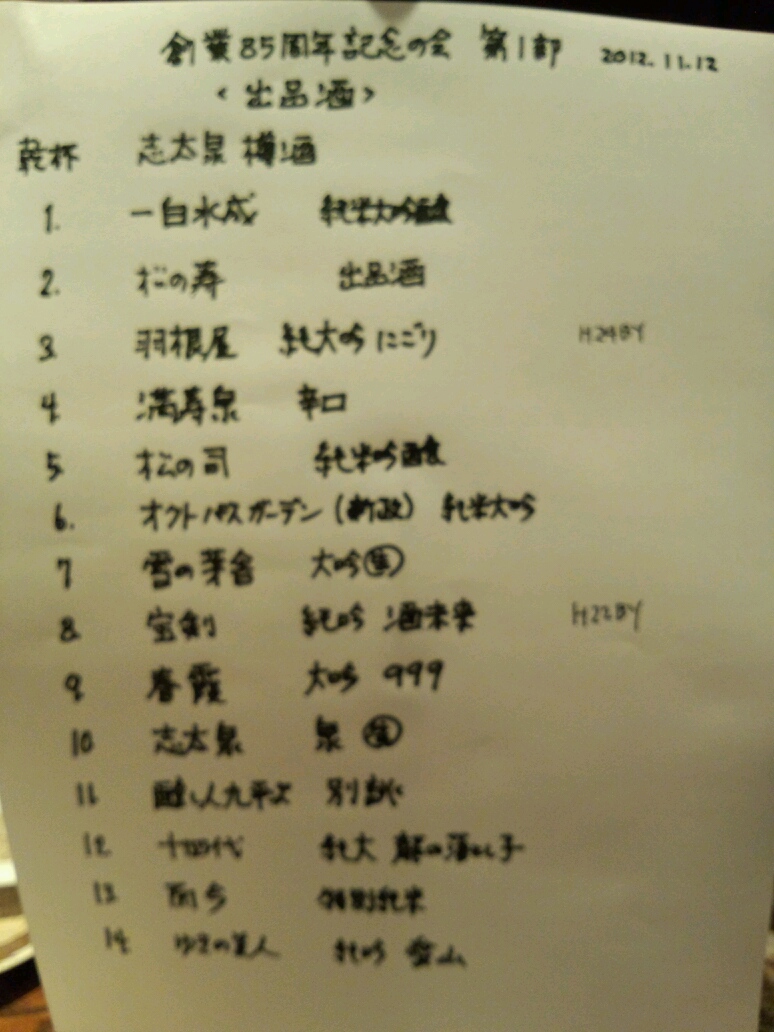 創業85周年記念の会 第1部 2012.11.12
<出品酒>
乾杯 志太泉 樽酒
1. 一白水成 純米大吟醸
2. 松の寿 出品酒
3. 羽根屋 純大吟 にごり H24BY
4. 満寿泉 辛口
5. 松の司 純米吟醸
6. オクトパスガーデン (新政) 純米大吟
7 雪の茅舎 大吟
8. 宝剣 純吟 酒未来 H22BY
9. 春霞 大吟 999
10 志太泉 泉
11 醸し人九平次 別誂
12. 十四代 純大 龍の落とし子
13. 而今 特別純米
14. 純吟 愛山